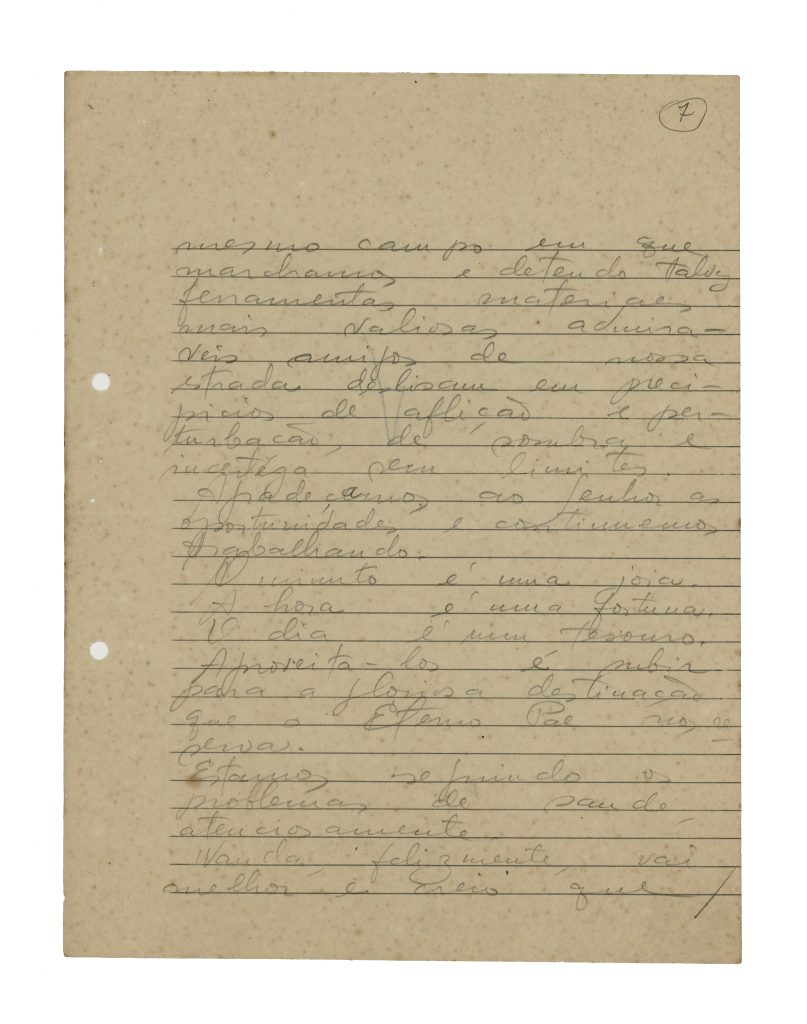 7
mesmo campo em que
marchamos e detendo talvez
ferramentas materiaes
mais valiosas admira-
veis amigos de nossa
estrada deslisam em preci-
picios de aflição e per-
turbação, de sombra e
incertêza sem limites.
Agradeçamos ao Senhor as
oportunidades e continuemos
trabalhando.
O minuto é uma joia.
A hora é uma fortuna.
O dia é um tesouro.
Aproveita-los é subir
para a gloriosa destinação
que o Eterno Pae nos re
serva.
Estamos seguindo os
problemas de saude,
atenciosamente.
Wanda, felizmente, vai
melhor e creio que